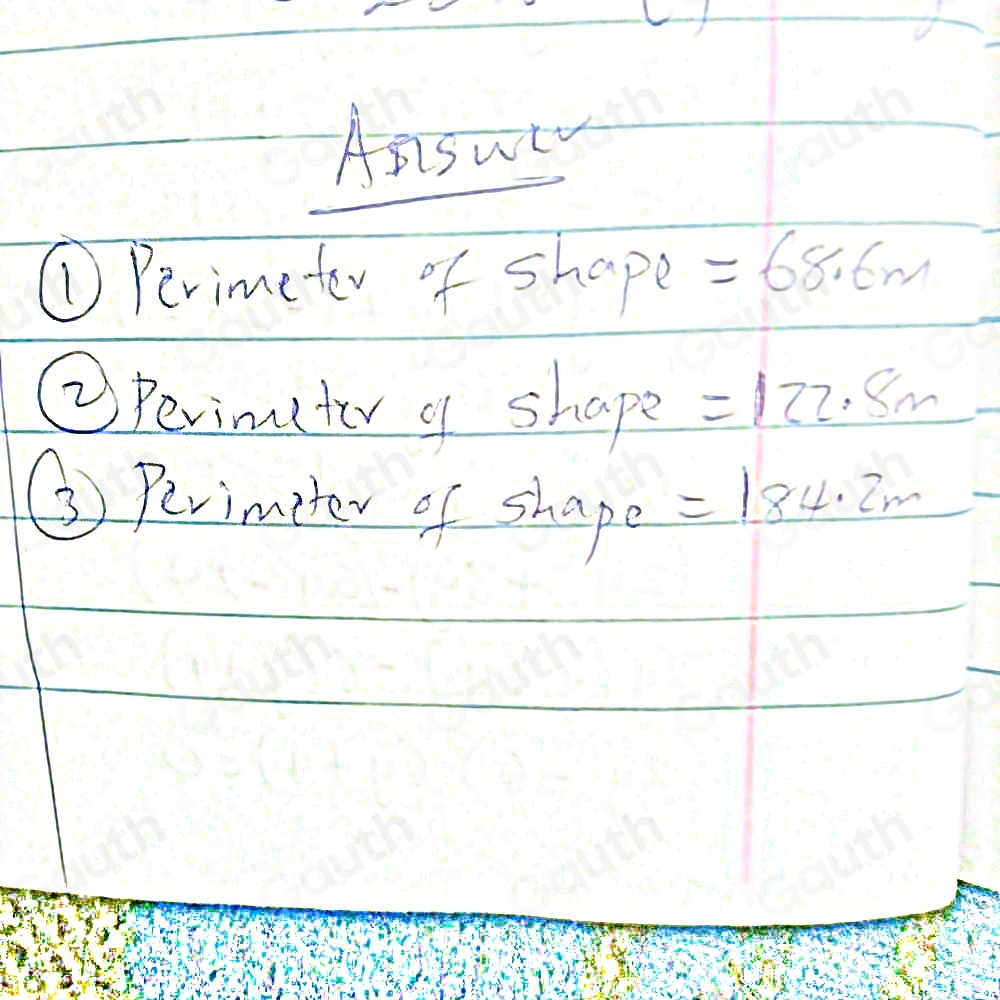 Answer
① Perimeter of shape = 68.6m
② Perimeter of shape = 122.8m
③ Perimeter of shape = 184.2m